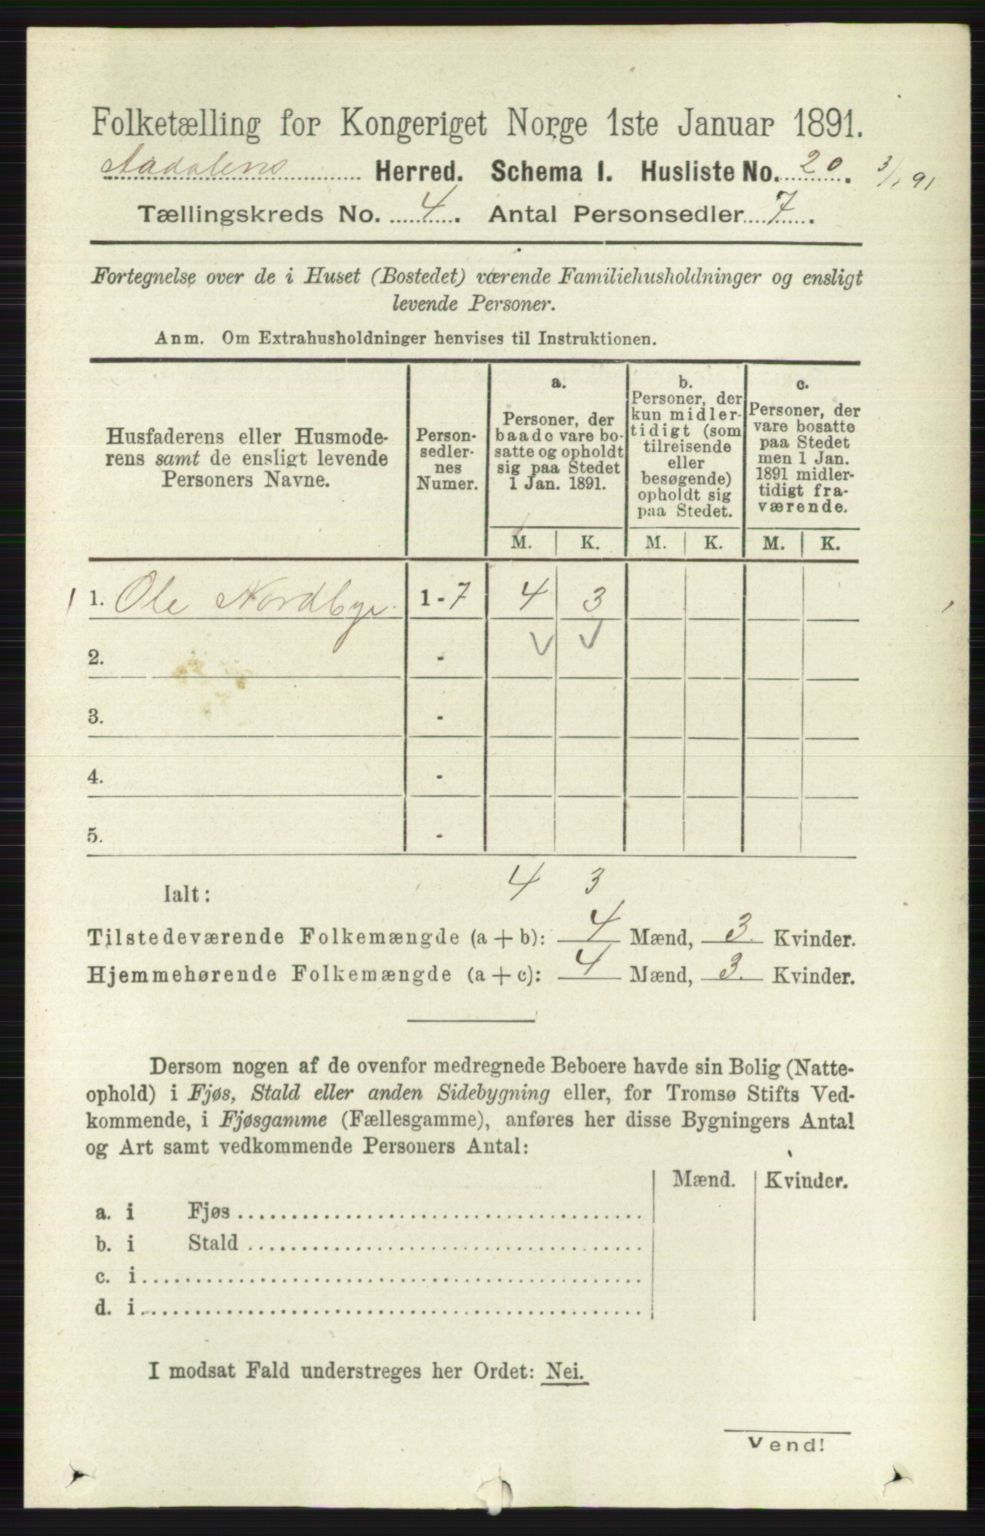 Folketælling for Kongeriget Norge 1ste Januar 1891.
Aadalens Herred. Schema I. Husliste No. 20. 3/1 91
Tællingskreds No. 4. Antal Personsedler 7.
Fortegnelse over de i Huset (Bostedet) værende Familiehusholdninger og ensligt
levende Personer.
Anm. Om Extrahusholdninger henvises til Instruktionen.
Husfaderens eller Husmode-
rens samt de ensligt levende
Personers Navne.
Person-
sedler-
nes
Numer.
a.
Personer, der
baade vare bo-
satte og opholdt
sig paa Stedet
1 Jan. 1891.
b.
Personer, der
kun midler-
tidigt (som
tilreisende
eller
besøgende)
opholdt sig
paa Stedet.
c.
Personer, der
vare bosatte
paa Stedet
men 1 Jan.
1891 midler-
tidigt fra-
værende.
M. K. M. K. M. K.
1 1. Ole Nordbye. 1-7 4 3
2. -
3. -
4. -
5. -
Ialt: 4 3
Tilstedeværende Folkemængde (a + b): 4 Mænd, 3. Kvinder.
Hjemmehørende Folkemængde (a + c): 4 Mænd, 3. Kvinder.
Dersom nogen af de ovenfor medregnede Beboere havde sin Bolig (Natte-
ophold) i Fjøs, Stald eller anden Sidebygning eller, for Tromsø Stifts Ved-
kommende, i Fjøsgamme (Fællesgamme), anføres her disse Bygningers Antal
og Art samt vedkommende Personers Antal:
Mænd. Kvinder.
a. i Fjøs
b. i Stald
c. i
d. i
I modsat Fald understreges her Ordet: Nei.
Vend!